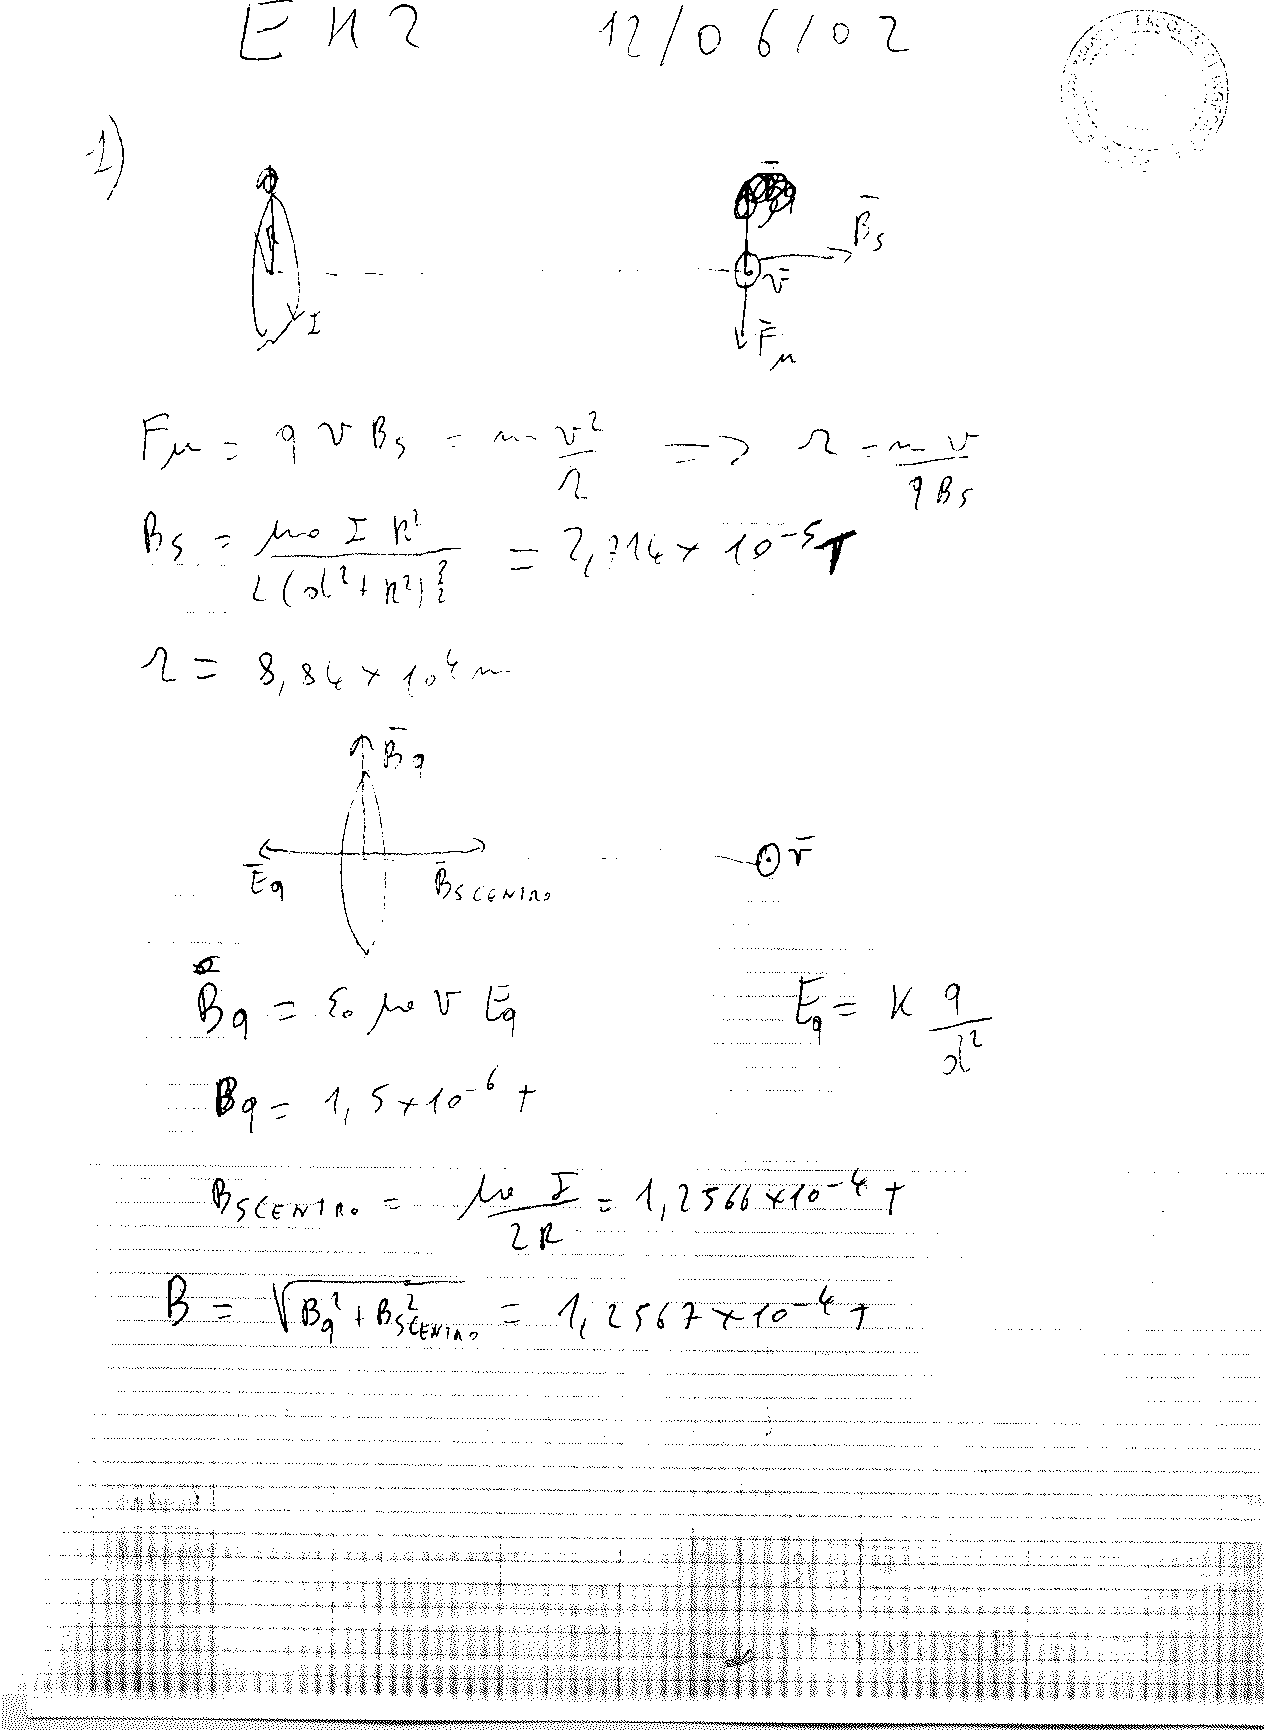 EM2 12/06/02
1)
B̄q
B̄s
v̄
I
F̄m
Fm = q v Bs = m v²/r => r = m v / q Bs
Bs = μ0 I R² / 2(d²+R²)^3/2 = 2,714 × 10⁻⁵ T
r = 8,84 × 10⁴ m
B̄q
Ēq B̄SCENTRO v̄
Bq = ε0 μ0 v Eq Eq = K q/d²
Bq = 1,5×10⁻⁶ T
BSCENTRO = μ0 I / 2R = 1,2566×10⁻⁴ T
B = √(Bq² + B²SCENTRO) = 1,2567×10⁻⁴ T